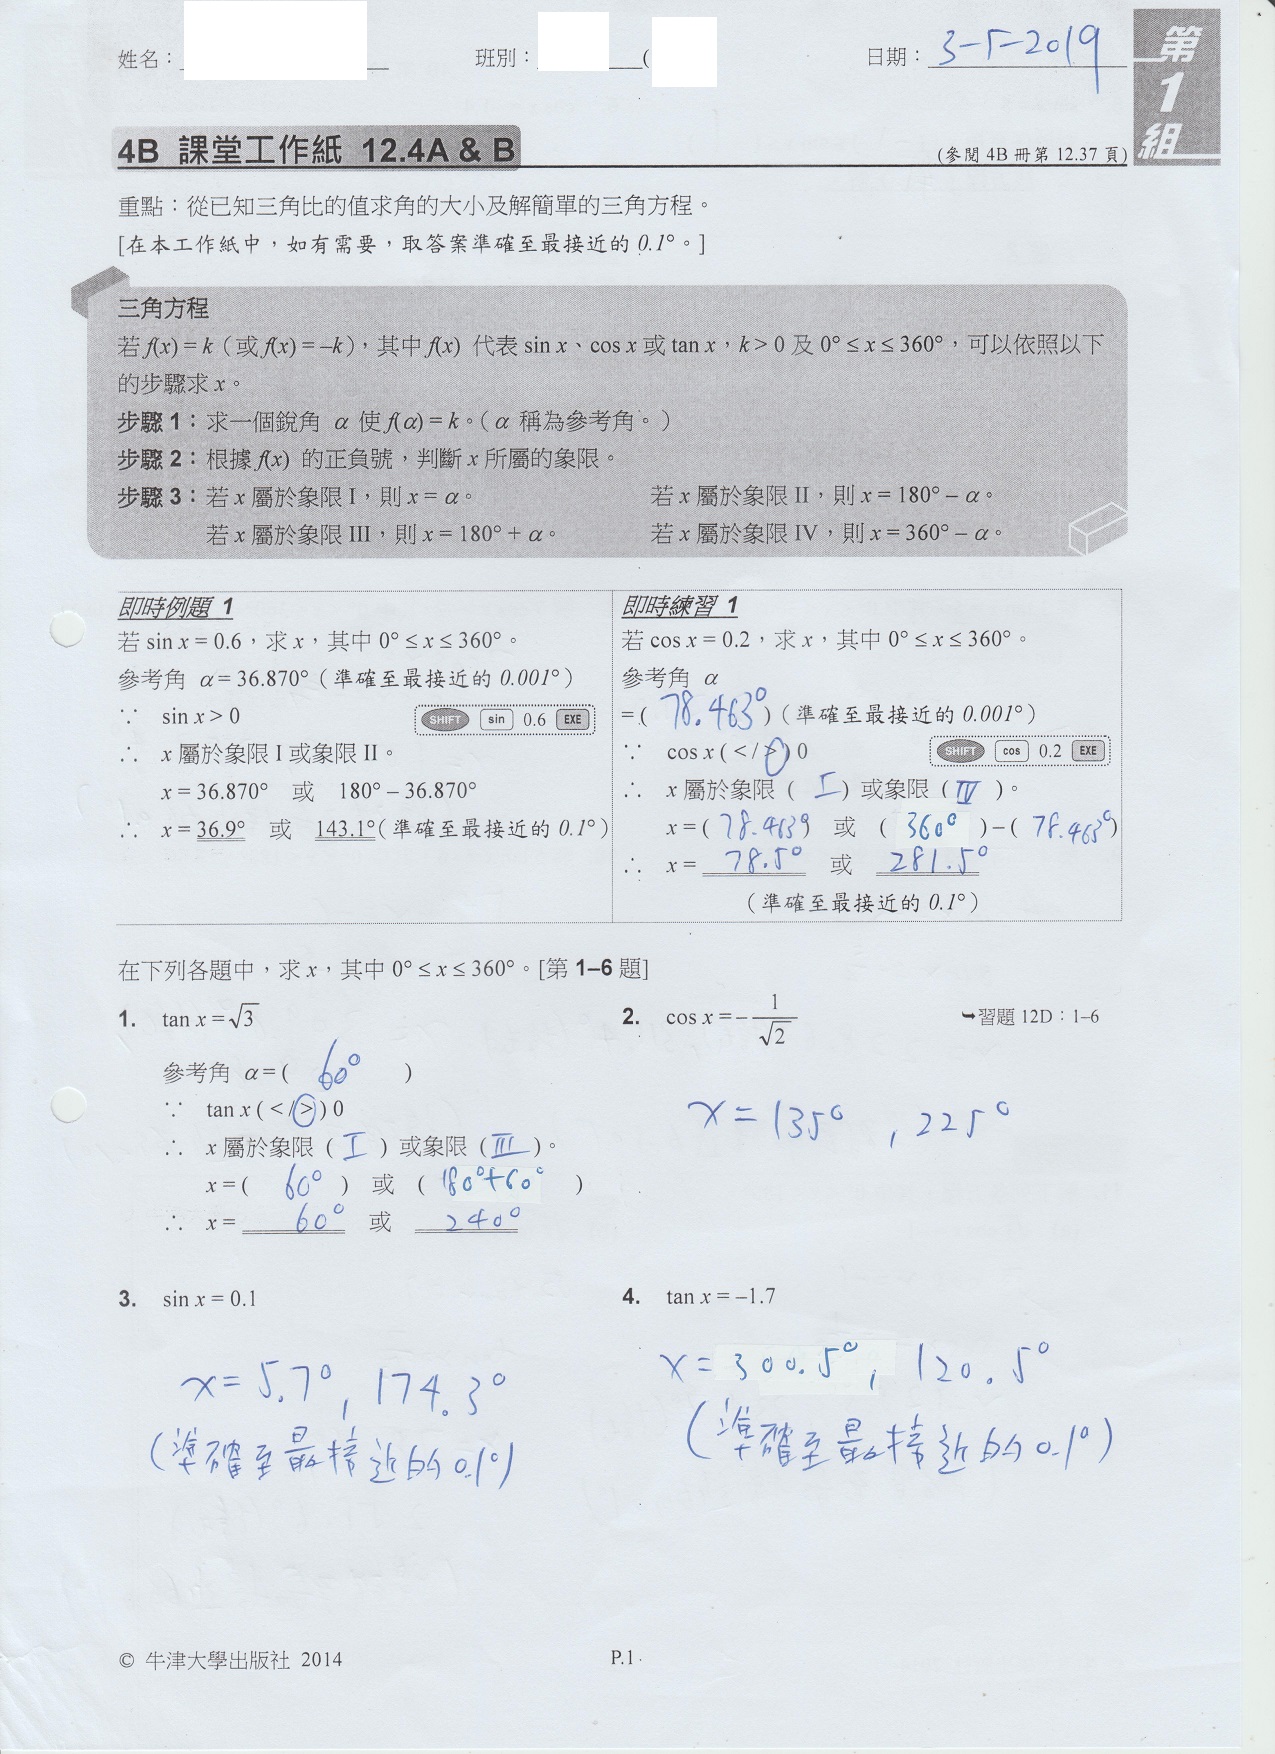 姓名：
班別：
(
日期： 3-5-2019
第
1
組
4B 課堂工作紙 12.4A & B
(參閱 4B 冊第 12.37 頁)
重點：從已知三角比的值求角的大小及解簡單的三角方程。
[在本工作紙中，如有需要，取答案準確至最接近的 0.1°。]
三角方程
若 f(x) = k（或 f(x) = –k），其中 f(x) 代表 sin x、cos x 或 tan x，k > 0 及 0° ≤ x ≤ 360°，可以依照以下
的步驟求 x。
步驟 1：求一個銳角 α 使 f(α) = k。（α 稱為參考角。）
步驟 2：根據 f(x) 的正負號，判斷 x 所屬的象限。
步驟 3：若 x 屬於象限 I，則 x = α。 若 x 屬於象限 II，則 x = 180° – α。
若 x 屬於象限 III，則 x = 180° + α。 若 x 屬於象限 IV，則 x = 360° – α。
即時例題 1
若 sin x = 0.6，求 x，其中 0° ≤ x ≤ 360°。
參考角 α = 36.870°（準確至最接近的 0.001°）
∵ sin x > 0 SHIFT sin 0.6 EXE
∴ x 屬於象限 I 或象限 II。
x = 36.870° 或 180° – 36.870°
∴ x = 36.9° 或 143.1°(準確至最接近的 0.1°)
即時練習 1
若 cos x = 0.2，求 x，其中 0° ≤ x ≤ 360°。
參考角 α
= ( 78.463° )（準確至最接近的 0.001°）
∵ cos x ( < / > ) 0 SHIFT cos 0.2 EXE
∴ x 屬於象限 ( I ) 或象限 ( IV )。
x = ( 78.463° ) 或 ( 360° ) – ( 78.463° )
∴ x = 78.5° 或 281.5°
（準確至最接近的 0.1°）
在下列各題中，求 x，其中 0° ≤ x ≤ 360°。[第 1–6 題]
1. tan x = √3
參考角 α = ( 60° )
∵ tan x ( < / > ) 0
∴ x 屬於象限 ( I ) 或象限 ( III )。
x = ( 60° ) 或 ( 180°+60° )
∴ x = 60° 或 240°
2. cos x = – 1/√2 ➥習題 12D：1–6
x = 135° , 225°
3. sin x = 0.1
x = 5.7° , 174.3°
(準確至最接近的 0.1°)
4. tan x = –1.7
x = 300.5° , 120.5°
(準確至最接近的 0.1°)
© 牛津大學出版社 2014
P.1